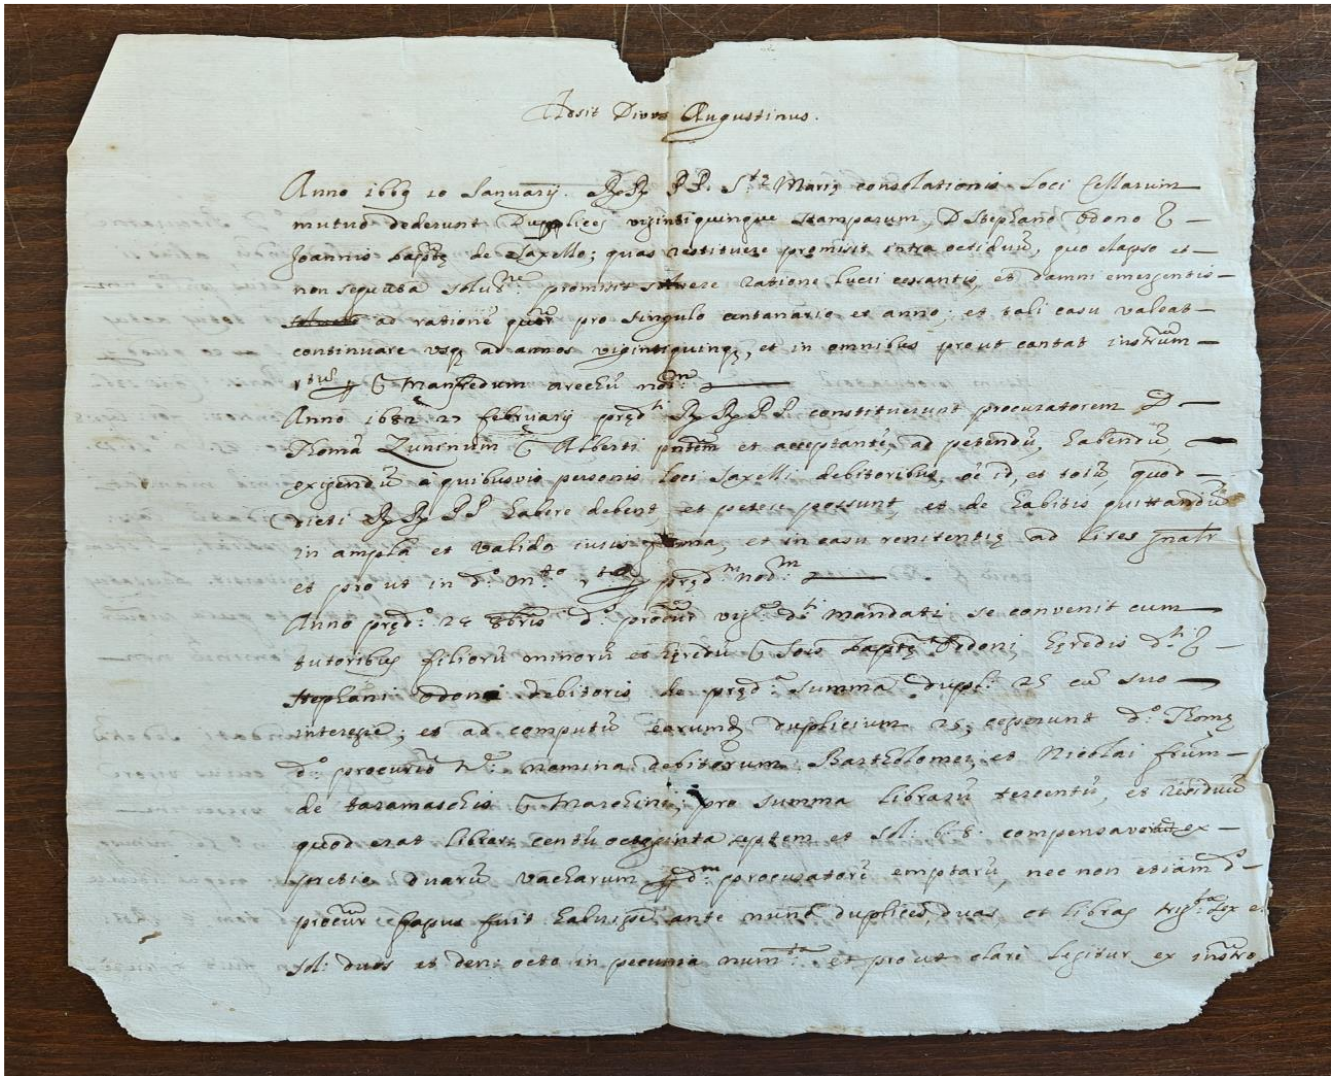 Adsit Divus Augustinus.
Anno 1669 10 Januarij. RR PP. S.tæ Marię consolationis Loci Cellarum
mutuo dederunt Dupplices vigintiquinque stamparum, D Stephano Odono q
Joannis Baptę de Saxello; quas restituere promisit intra ; quo elapso et
non sequuta solut.ne promisit solvere ratione lucri cessantis, et damni emergentis
ad rationē quatr pro singulo centanario et anno; et tali casu valeat
continuare usq ad annos vigintiquinq, et in omnibus prout cantat instrum
q Manfredum not.m
Anno 1682 27 februarij pręd.ti RR PP constituerunt procuratorem D
Thomā Zuninum q Alberti pntem et acceptantē, ad petendū, habendū,
exigendū a quibusvis personis loci Saxelli debitoribus, oē id, et totū, quod
dicti RR PP habere debent, et petere possunt, et de habitis quittandū
in ampla et valida iuris forma, et in casu renitentię ad lites gnalr
et prout in d.o pręd.m not.m
Anno pręd.o 24 8bris d.s procur vig.e d.ti mandati se convenit cum
tutoribus filiorū minorū et hęredū q Jois Baptę Odoni, hęredis d.ti q
Stephani Odoni debitoris de pręd.a summa dupl.m 25 cū suo
interesse; et ad computū earumd duplicium 25, cesserunt d.o Thomę
d.o procurio nomina debitorum Bartholomei, et Nicolai frūm
de taramaschis q Marchini, pro summa librarū tercentū, et residuū
quod erat librar centū octoginta septem et sol: 6: 8: compensaverūt ex
pretio duarū vacharum d.m procuratorē emptarū, nec non etiam d.s
procur fassus fuit habuisse ante nunc duplices duas, et libras sex et
sol: duos et den: octo in pecunia num.ta et prout clare legitur ex instro